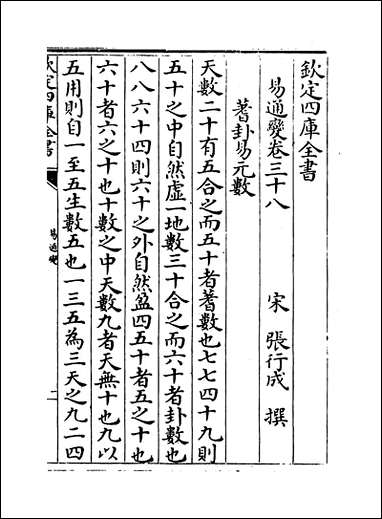 欽定四庫全書
易通變卷三十八
宋 張行成 撰
蓍卦易元數
天數二十有五合之而五十者蓍數也七七四十九則
五十之中自然虛一地數三十合之而六十者卦數也
八八六十四則六十之外自然盈四五十者五之十也
六十者六之十也十數之中天數九者天無十也九以
五用則自一至五生數五也一三五為三天之九二四
欽定四庫全書
易通變
一